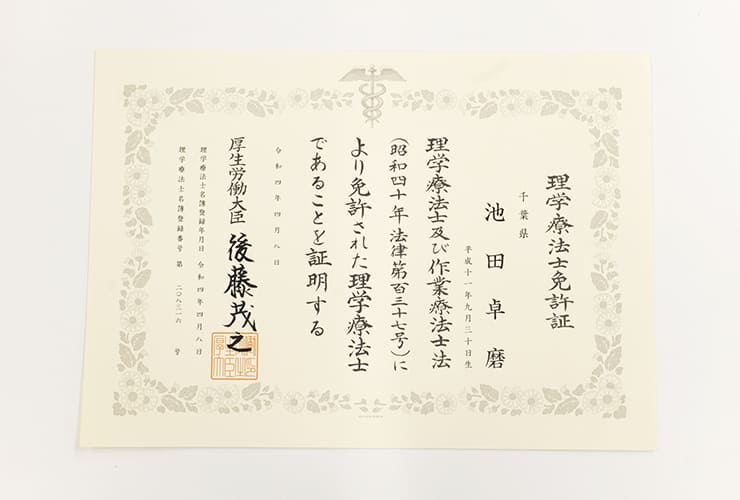 理学療法士免許証
千葉県
池田卓磨
平成十一年九月三十日生
理学療法士及び作業療法士法
(昭和四十年法律第百三十七号)に
より免許された理学療法士
であることを証明する
令和四年四月八日
厚生労働大臣 後藤茂之
理学療法士名簿登録年月日 令和四年四月八日
理学療法士名簿登録番号 第 二〇八三一六 号